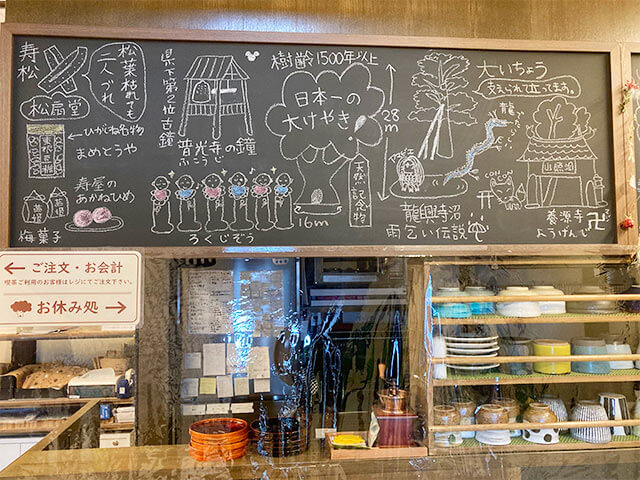 寿松
松葉枯れても
二人づれ
松扇堂
ひがね名物
まめとうや
寿屋の
あかねひめ
梅菓子
県下第2位古鐘
普光寺の鐘
ふこうじ
ろくじぞう
樹齢1500年以上
日本一の
大けやき
28m
16m
天然記念物
大いちょう
支えられて立ってます。
龍
龍興寺沼
雨乞い伝説
養源寺
ようげんじ
← ご注文・お会計
喫茶ご利用のお客様はレジにてご注文下さい。
お休み処 →